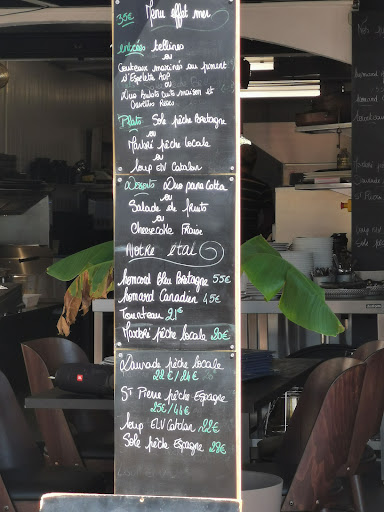 35€ Menu effet mer
entrées tellines
ou
Couteaux marinés au piment
d'Espelette AOP
ou
Duo Bulots cuits maison et
Crevettes Roses
Plats Sole pêche Bretagne
ou
Marbré pêche locale
ou
loup ELV Catalan
Desserts Duo panacotta
ou
Salade de fruits
ou
Cheesecake Fraise
Notre étal
homard Bleu Bretagne 55€
homard Canadien 45€
Tourteau 21€
Marbré pêche locale 20€
Daurade pêche locale
22€/24€
St Pierre pêche Espagne
25€/44€
loup ELV Catalan 22€
Sole pêche Espagne 29€